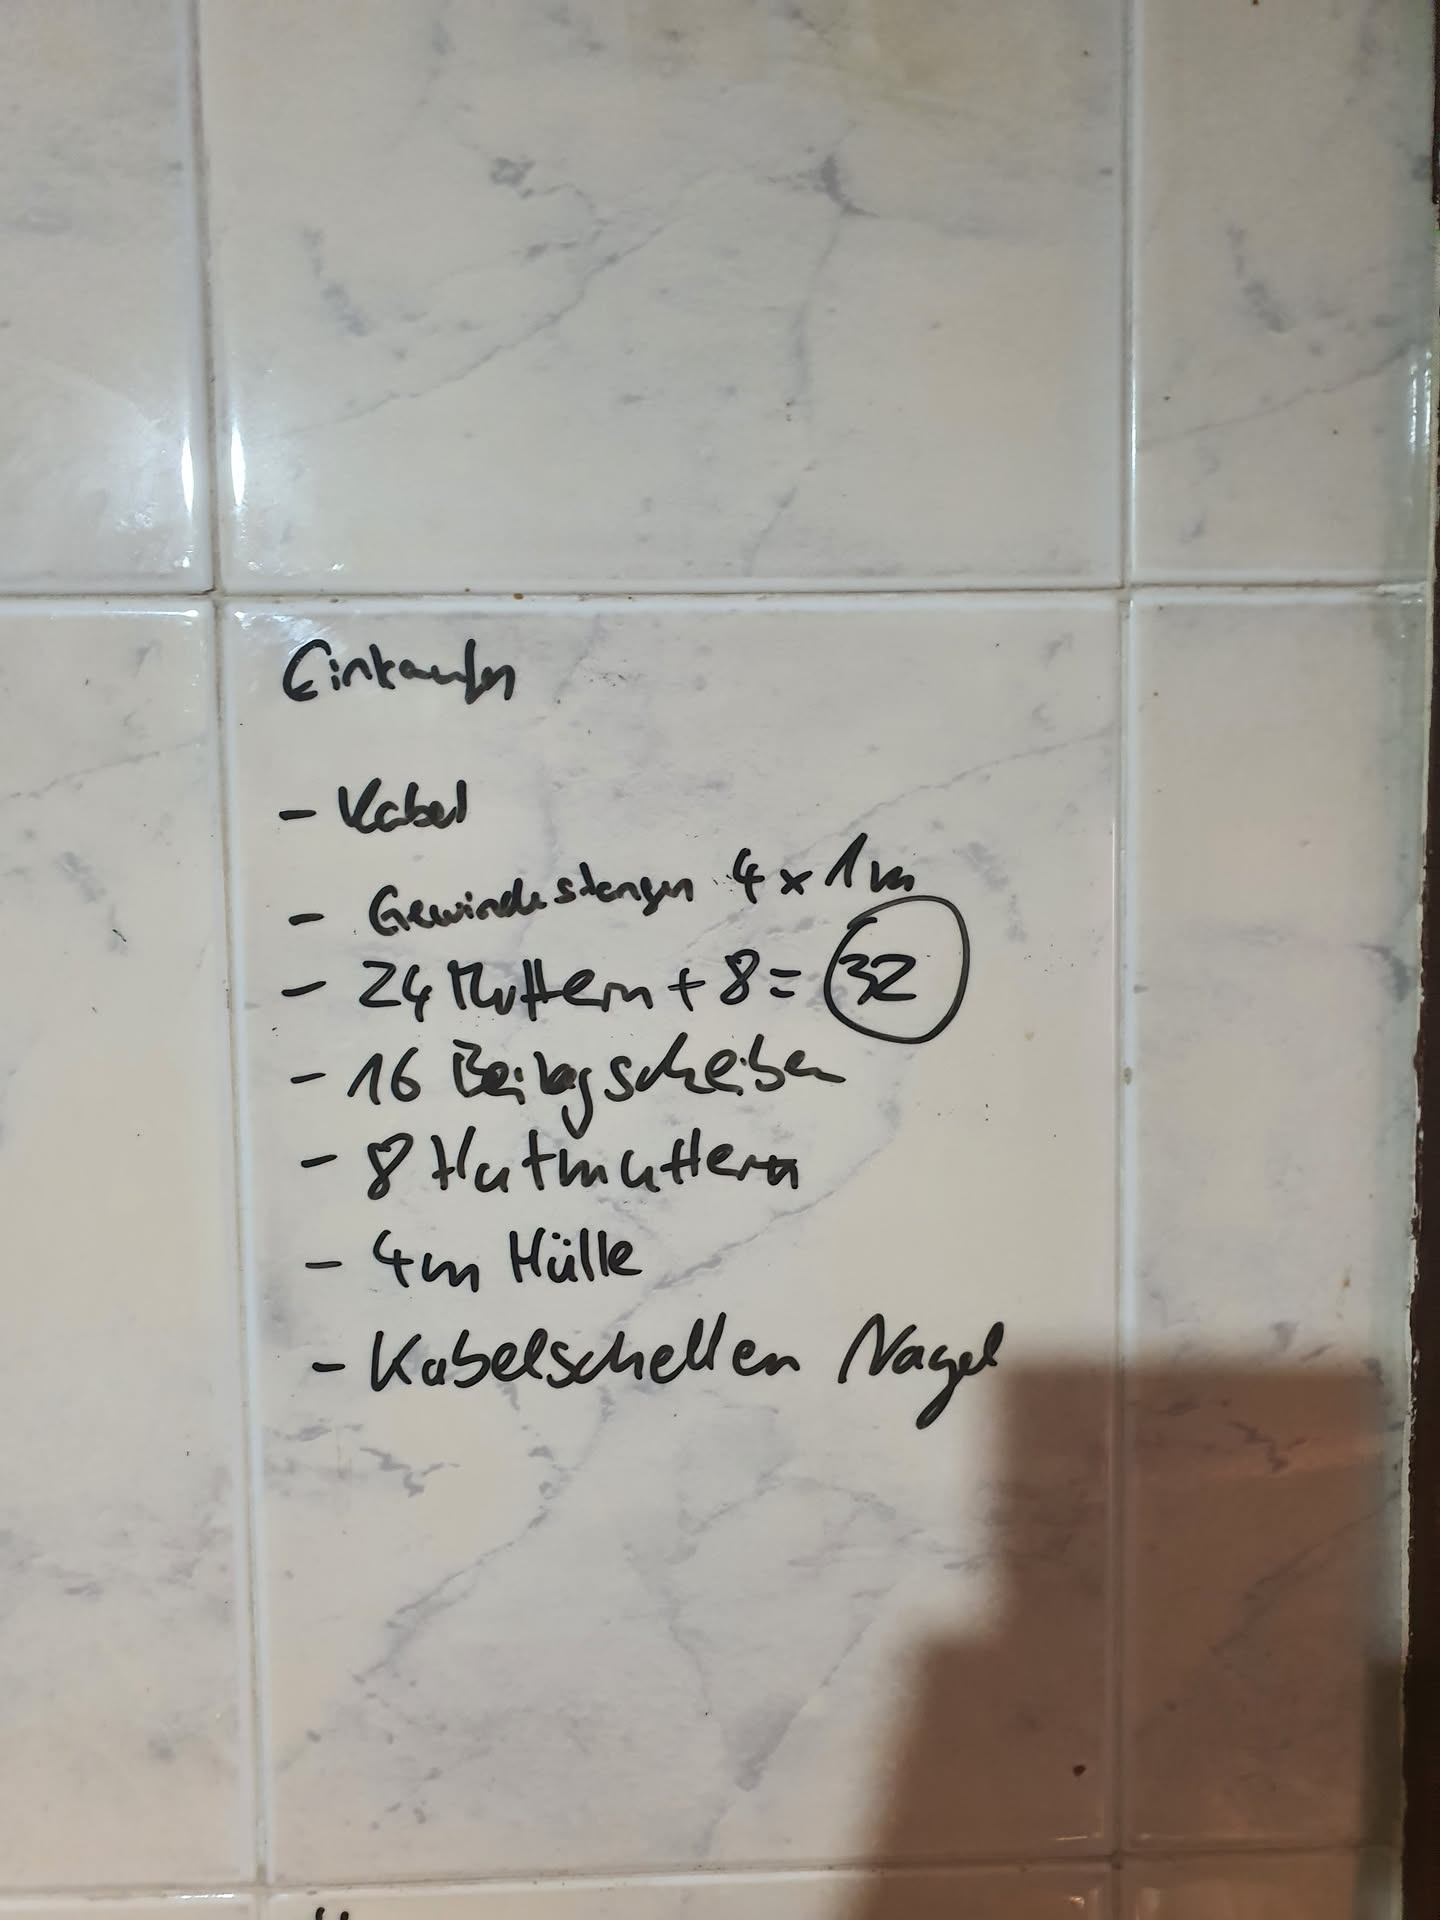 Einkaufen
- Kabel
- Gewindestangen 4 x 1m
- 24 Muttern + 8 = 32
- 16 Beilagscheiben
- 8 Hutmuttern
- 4m Hülle
- Kabelschellen Nagel